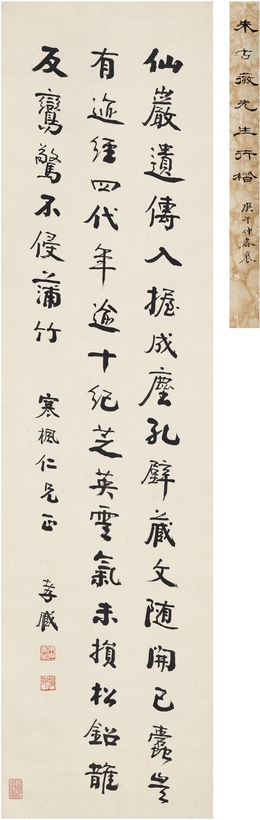 仙巖遺傳入握成塵孔壁藏文随開已蠹豈
有迹經四代年逾十紀芝英雲氣未損松鉛䧿
反鸞驚不侵蒲竹 寒楓仁兄正 孝臧
朱古薇先生行楷 庚午仲春裝